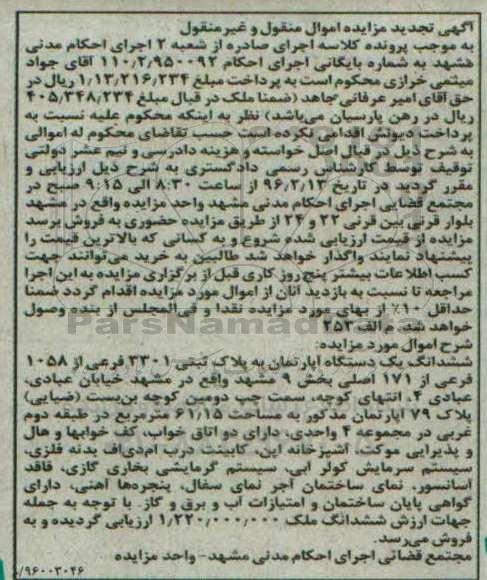 آگهی تجدید مزایده اموال منقول و غیرمنقول
به موجب پرونده کلاسه اجرای صادره از شعبه ۲ اجرای احکام مدنی
مشهد به شماره بایگانی اجرای احکام ۱۱۰/۲/۹۵۰۰۹۲ آقای جواد
میثمی خرازی محکوم است به پرداخت مبلغ ۱/۱۳/۲۱۶/۲۳۴ ریال در
حق آقای امیر عرفانی جاهد (ضمنا ملک در قبال مبلغ ۴۰۵/۳۴۸/۲۳۴
ریال در رهن پارسیان می‌باشد) نظر به اینکه محکوم علیه نسبت به
پرداخت دیونش اقدامی نکرده است حسب تقاضای محکوم له اموالی
به شرح ذیل در قبال اصل خواسته و هزینه دادرسی و نیم عشر دولتی
توقیف توسط کارشناس رسمی دادگستری به شرح ذیل ارزیابی و
مقرر گردید در تاریخ ۹۶/۲/۱۳ از ساعت ۸:۳۰ الی ۹:۱۵ صبح در
مجتمع قضایی اجرای احکام مدنی مشهد واحد مزایده واقع در مشهد
بلوار قرنی بین قرنی ۲۲ و ۲۴ از طریق مزایده حضوری به فروش برسد
مزایده از قیمت ارزیابی شده شروع و به کسانی که بالاترین قیمت را
پیشنهاد نمایند واگذار خواهد شد طالبین به خرید می‌توانند جهت
کسب اطلاعات بیشتر پنج روز کاری قبل از برگزاری مزایده به این اجرا
مراجعه تا نسبت به بازدید آنان از اموال مورد مزایده اقدام گردد ضمنا
حداقل ۱۰٪ از بهای مورد مزایده نقدا و فی‌المجلس از بنده وصول
خواهد شد. م الف ۲۵۳
شرح اموال مورد مزایده:
ششدانگ یک دستگاه آپارتمان به پلاک ثبتی ۳۳۰۱ فرعی از ۱۰۵۸
فرعی از ۱۷۱ اصلی بخش ۹ مشهد واقع در مشهد خیابان عبادی،
عبادی ۴، انتهای کوچه، سمت چپ دومین کوچه بن‌بست (ضیایی)
پلاک ۷۹ آپارتمان مذکور به مساحت ۶۱/۱۵ مترمربع در طبقه دوم
غربی در مجموعه ۴ واحدی، دارای دو اتاق خواب، کف خوابها و هال
و پذیرایی موکت، آشپزخانه اپن، کابینت درب ام‌دی‌اف بدنه فلزی،
سیستم سرمایش کولر آبی، سیستم گرمایشی بخاری گازی، فاقد
آسانسور، نمای ساختمان آجر نمای سفال، پنجره‌ها آهنی، دارای
گواهی پایان ساختمان و امتیازات آب و برق و گاز. با توجه به جمله
جهات ارزش ششدانگ ملک ۱/۲۲۰/۰۰۰/۰۰۰ ارزیابی گردیده و به
فروش می‌رسد.
مجتمع قضائی اجرای احکام مدنی مشهد- واحد مزایده
/۹۶۰۰۳۰۴۶
ParsNamadData